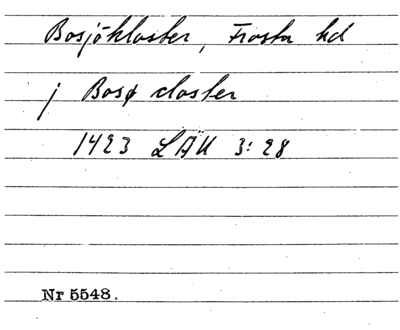 Bosjökloster, Frosta hd
j Bosø closter
1423 LÄU 3:28
Nr 5548.